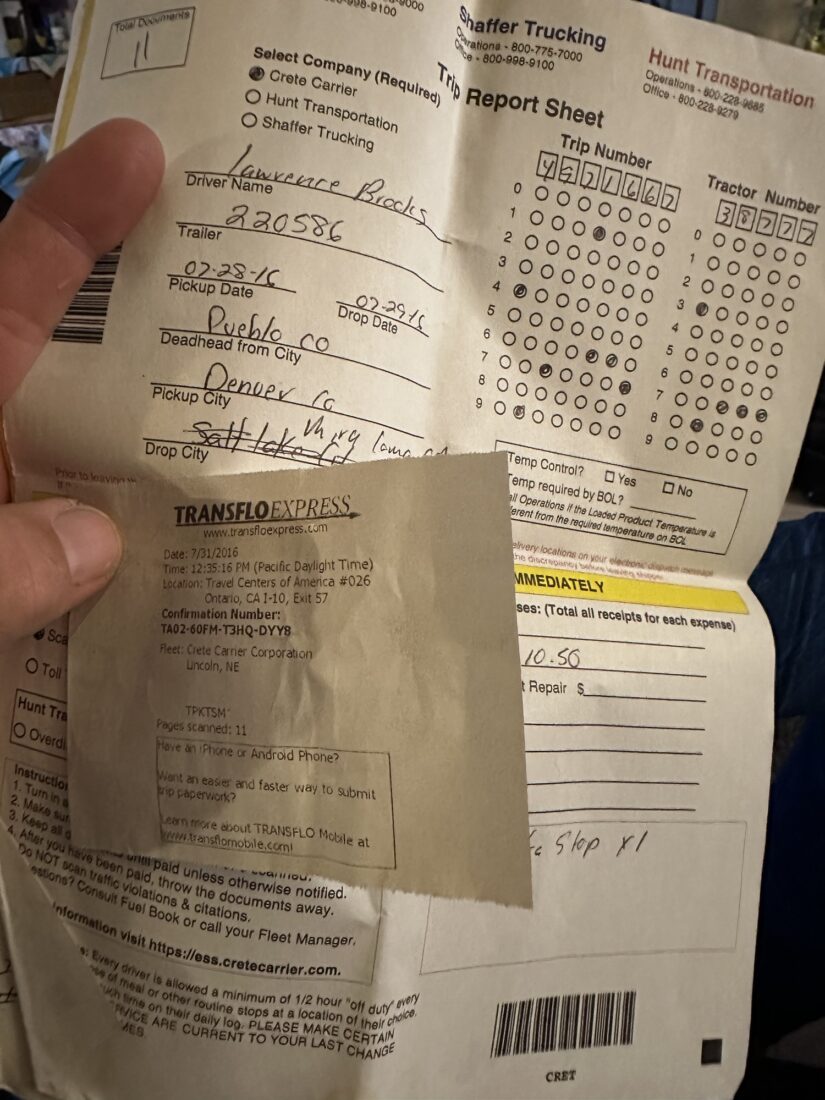 Total Documents
11
-9000
-998-9100
Shaffer Trucking
Operations - 800-775-7000
Office - 800-998-9100
Hunt Transportation
Operations - 800-228-9685
Office - 800-228-9279
Trip Report Sheet
Select Company (Required)
Crete Carrier
Hunt Transportation
Shaffer Trucking
Lawrence Brocks
Driver Name
220586
Trailer
07-28-16
Pickup Date
07-29-16
Drop Date
Pueblo CO
Deadhead from City
Denver Co
Pickup City
Salt lake
Drop City
Trip Number
4971667
0
1
2
3
4
5
6
7
8
9
Tractor Number
38777
0
1
2
3
4
5
6
7
8
9
Temp Control? Yes No
Temp required by BOL?
all Operations if the Loaded Product Temperature is
erent from the required temperature on BOL
Prior to leaving
delivery locations on your electronic dispatch message
the discrepancy before leaving shipper.
MMEDIATELY
ses: (Total all receipts for each expense)
10.50
t Repair $
Stop x1
TRANSFLO EXPRESS
www.transfloexpress.com
Date: 7/31/2016
Time: 12:35:16 PM (Pacific Daylight Time)
Location: Travel Centers of America #026
Ontario, CA I-10, Exit 57
Confirmation Number:
TA02-60FM-T3HQ-DYY8
Fleet: Crete Carrier Corporation
Lincoln, NE
TPKTSM
Pages scanned: 11
Have an iPhone or Android Phone?
Want an easier and faster way to submit
trip paperwork?
Learn more about TRANSFLO Mobile at
www.transflomobile.com!
Sca
Toll
Hunt Tra
Overdi
Instruction
1. Turn in a
2. Make sur
3. Keep all d
until paid unless otherwise notified.
4. After you have been paid, throw the documents away.
Do NOT scan traffic violations & citations.
estions? Consult Fuel Book or call your Fleet Manager.
information visit https://ess.cretecarrier.com.
e: Every driver is allowed a minimum of 1/2 hour "off duty" every
se of meal or other routine stops at a location of their choice.
uch time on their daily log. PLEASE MAKE CERTAIN
RVICE ARE CURRENT TO YOUR LAST CHANGE
MES.
CRET